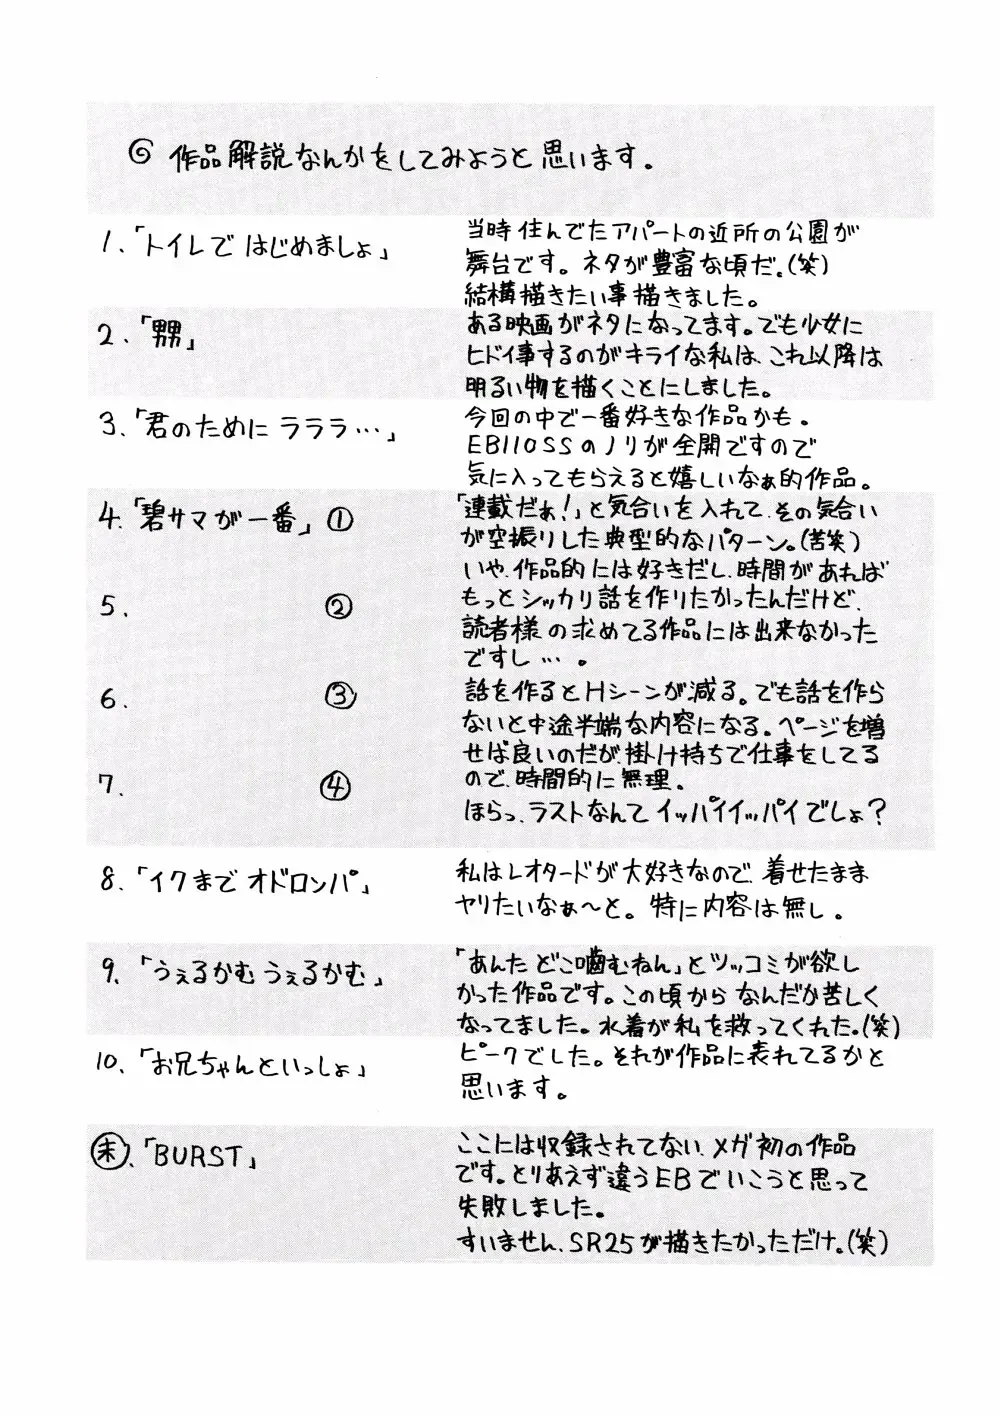 ◎ 作品解説なんかをしてみようと思います。
1.「トイレで はじめましょ」
当時住んでたアパートの近所の公園が
舞台です。ネタが豊富な頃だ。(笑)
結構描きたい事描きました。
2.「嬲」
ある映画がネタになってます。でも少女に
ヒドイ事するのがキライな私は、これ以降は
明るい物を描くことにしました。
3.「君のために ラララ…」
今回の中で一番好きな作品かも。
EB110SSのノリが全開ですので
気に入ってもらえると嬉しいなぁ的作品。
4.「碧サマが一番」①
5. ②
6. ③
7. ④
「連載だぁ!」と気合いを入れて、その気合い
が空振りした典型的なパターン。(苦笑)
いや、作品的には好きだし、時間があれば
もっとシッカリ話を作りたかったんだけど、
読者様の求めてる作品には出来なかった
ですし…。
話を作るとHシーンが減る。でも話を作ら
ないと中途半端な内容になる。ページを増
せば良いのだが、掛け持ちで仕事をしてる
ので、時間的に無理。
ほらっ、ラストなんてイッパイイッパイでしょ?
8.「イクまで オドロンパ」
私はレオタードが大好きなので、着せたまま
ヤりたいなぁ〜と。特に内容は無し。
9.「うぇるかむ うぇるかむ」
「あんた どこ噛むねん」とツッコミが欲し
かった作品です。この頃から なんだか苦しく
なってました。水着が私を救ってくれた。(笑)
10.「お兄ちゃんといっしょ」
ピークでした。それが作品に表れてるかと
思います。
末.「BURST」
ここには収録されてない、メグ初の作品
です。とりあえず違うEBでいこうと思って
失敗しました。
すいません、SR25が描きたかっただけ。(笑)